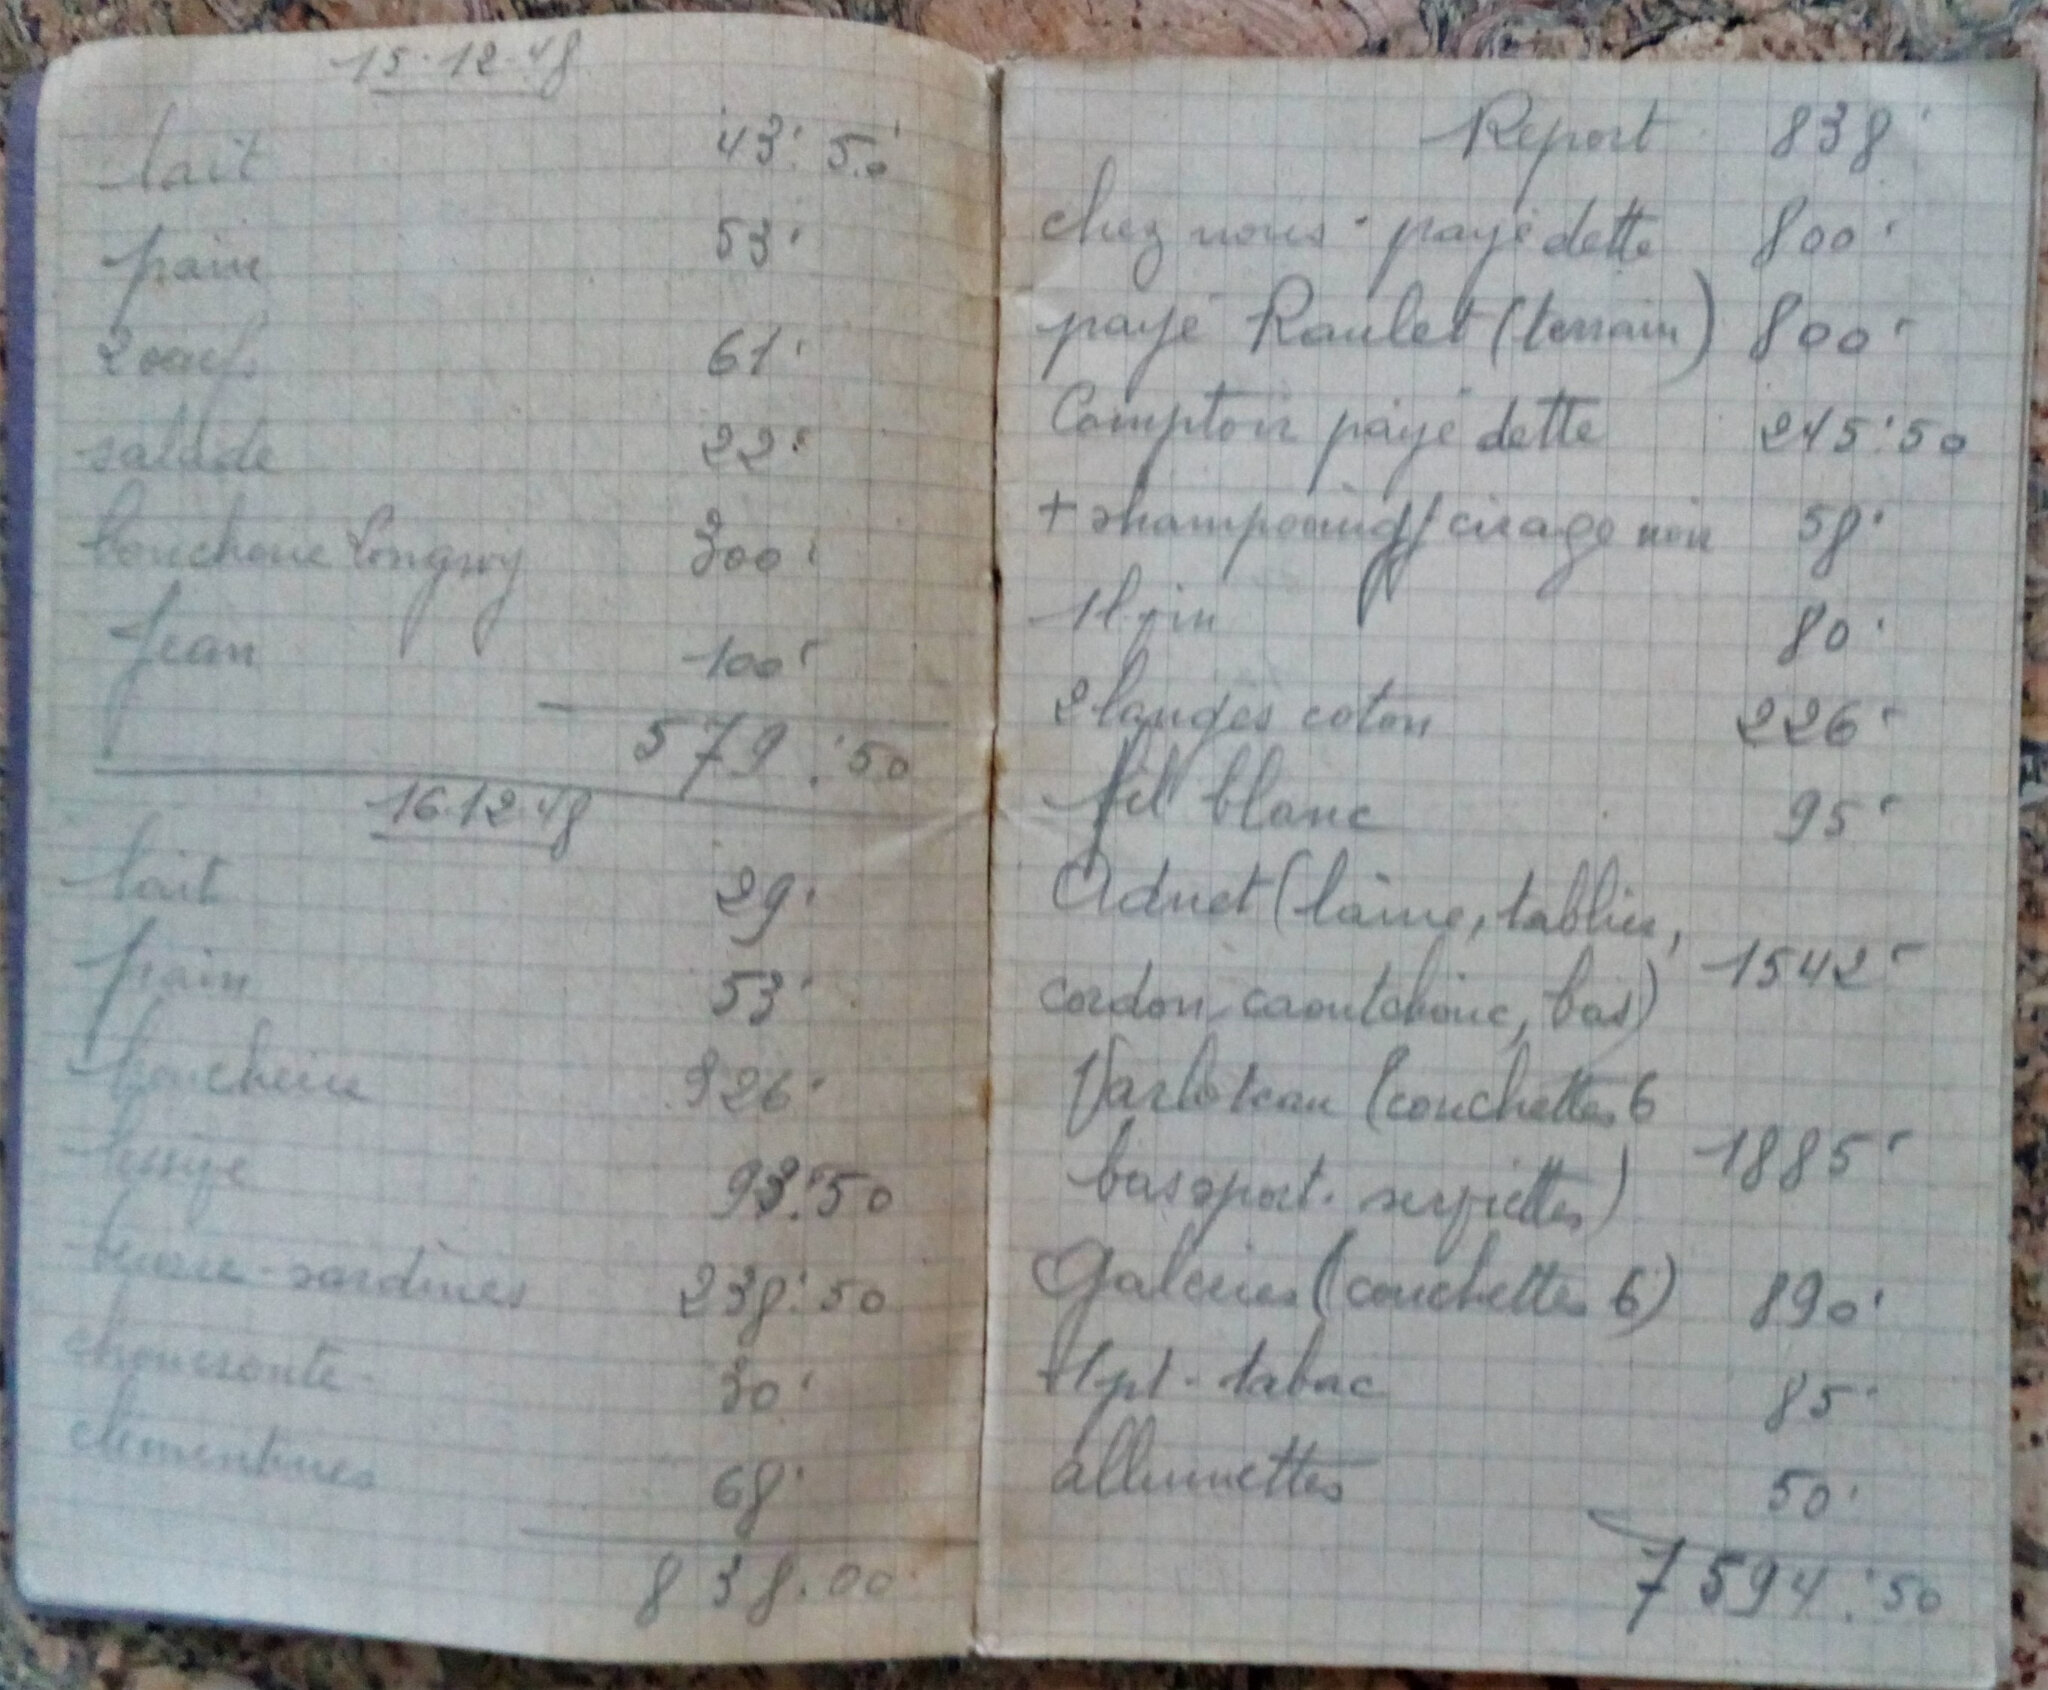 15.12.48
lait 43'.50
pain 53'
2 oeufs 61'
salade 22'
boucherie Longwy 300'
Jean 100'
579'.50
16.12.48
lait 29'
pain 53'
boucherie 326'
lessive 93'.50
beurre-sardines 238'.50
choucroute 30'
clémentines 68'
838.00
Report 838'
chez nous - payé dette 800'
payé Raulet (terrain) 800'
Comptoir payé dette 245'.50
+ shampooing / cirage noir 58'
1l vin 80'
2 langes coton 226'
fil blanc 95'
Adnet (laine, tablier,
cordon, caoutchouc, bas) 1542'
Varloteau (couchettes 6
bas sport. serviettes) 1885'
Galeries (couchettes 6) 890'
1 pt - tabac 85'
allumettes 50'
7594'.50